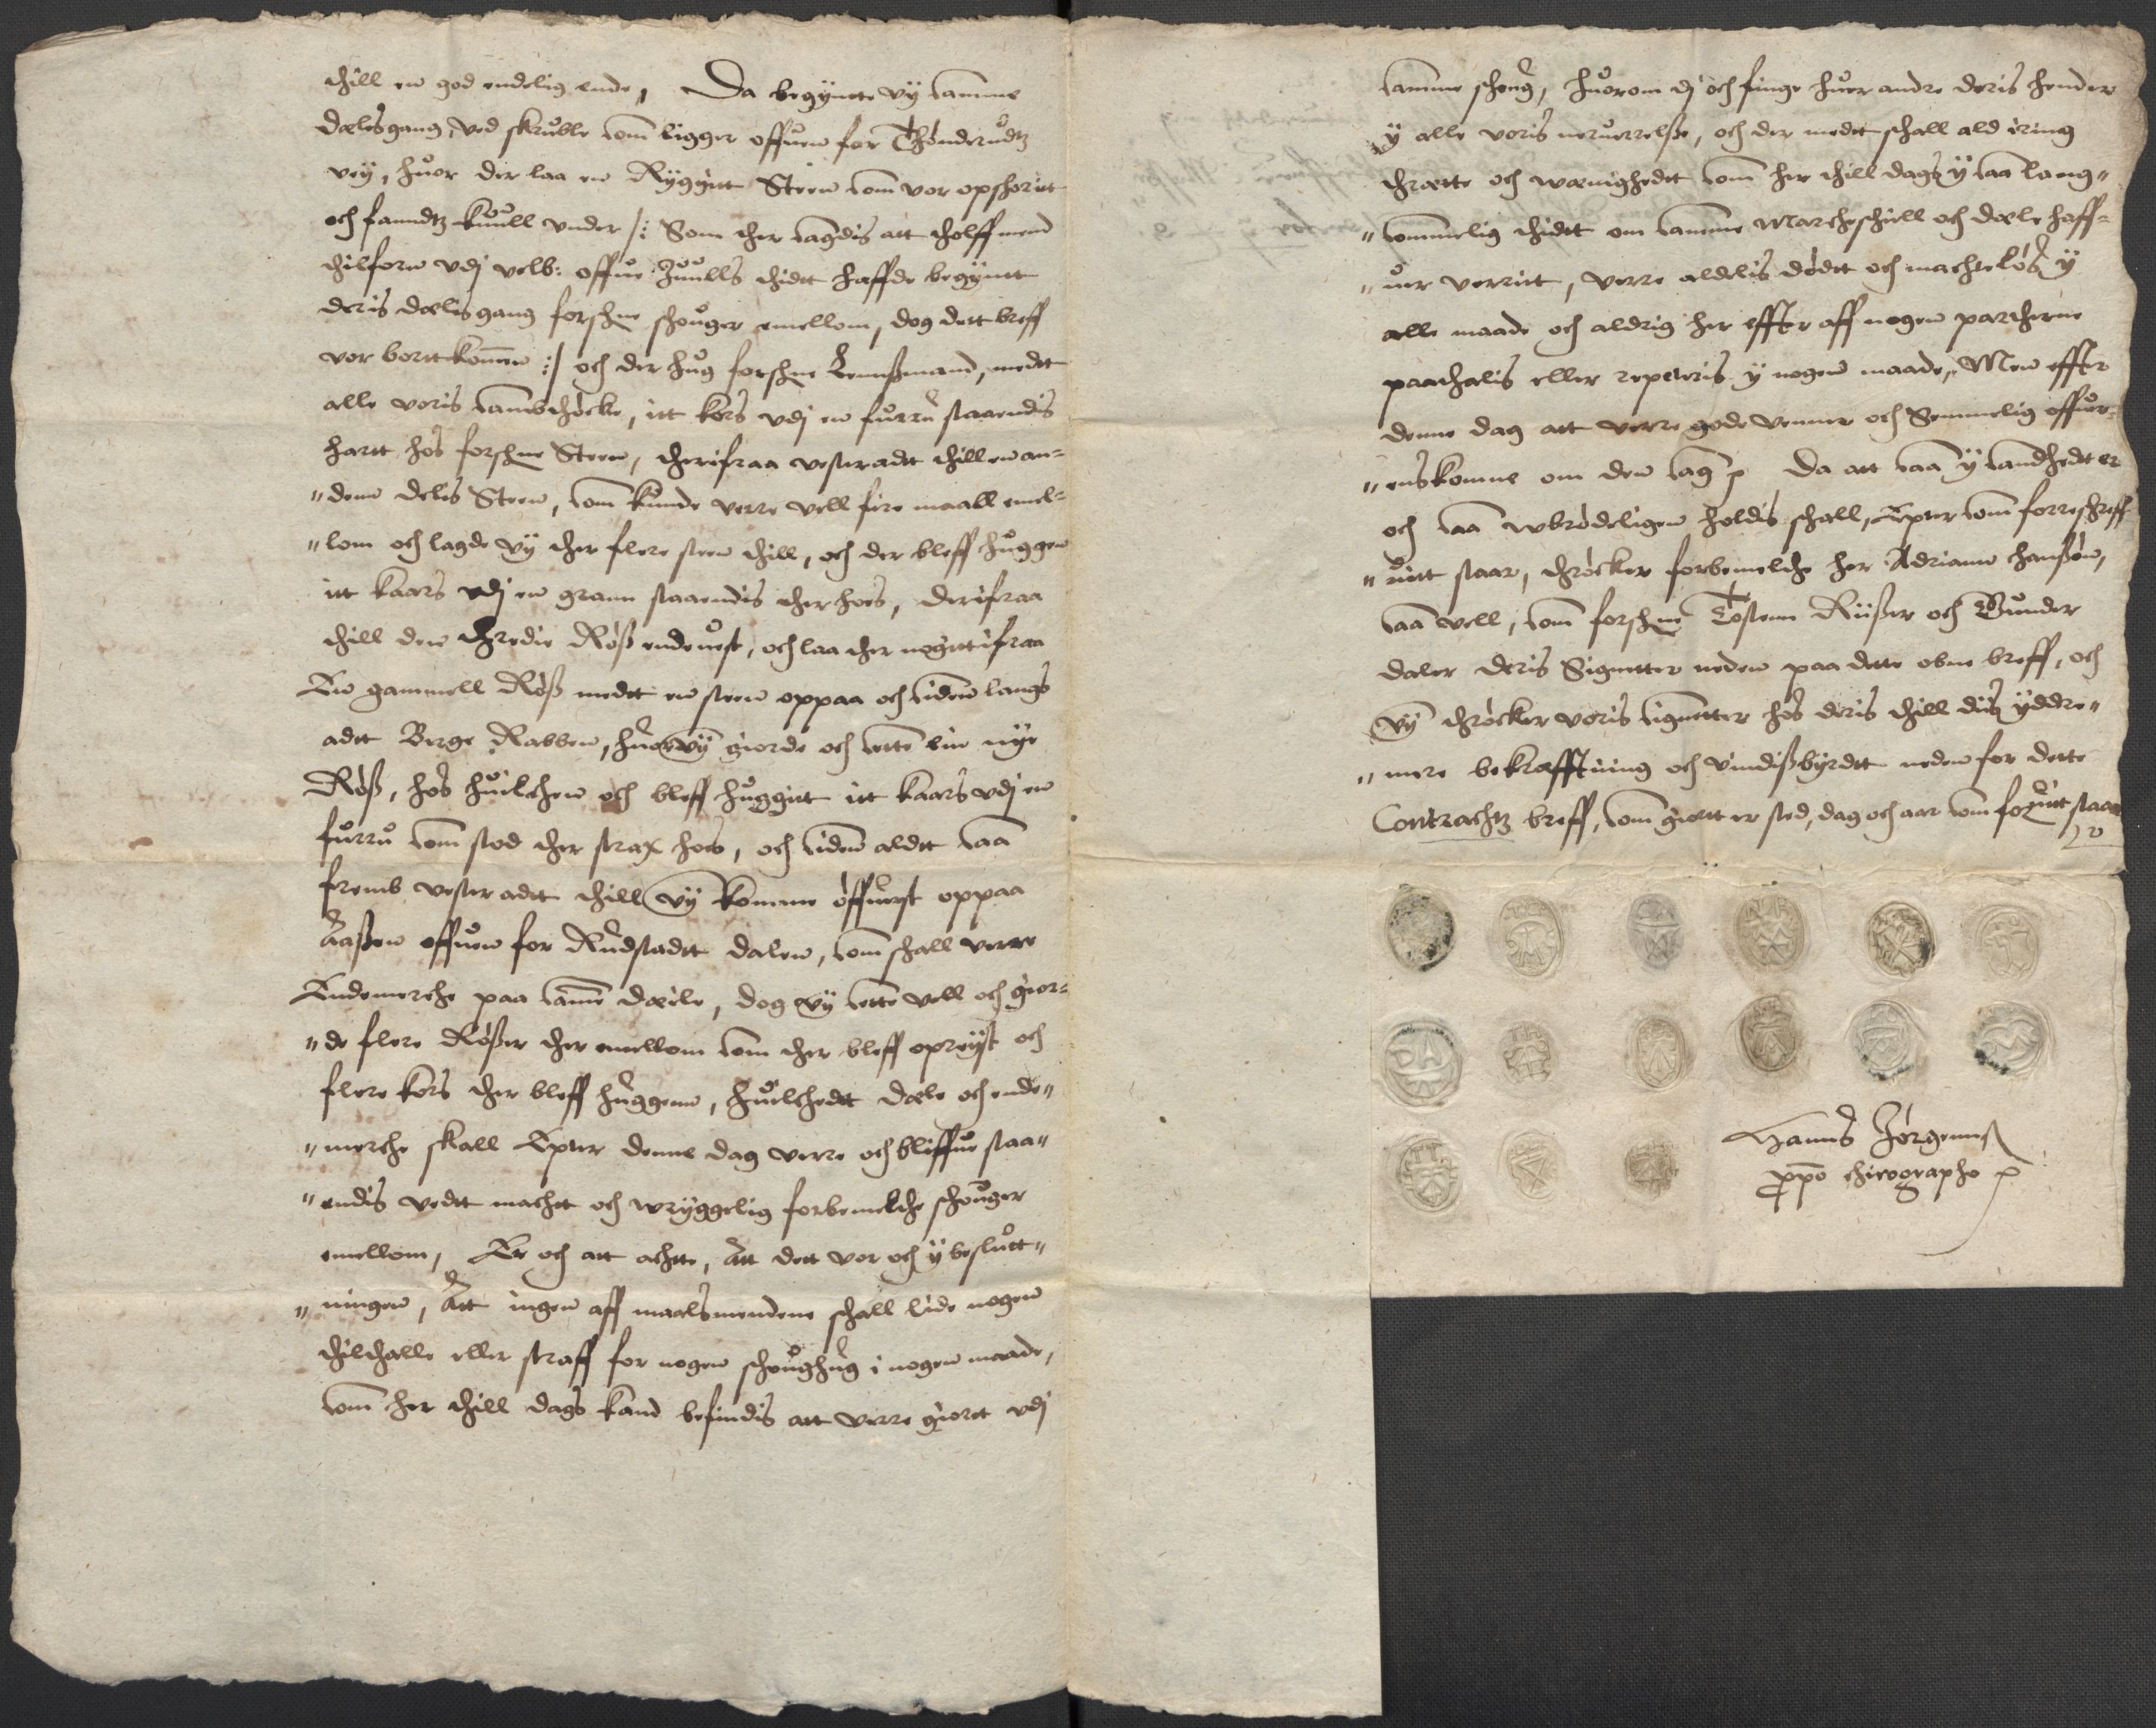 thill en god endelig ende, Da begÿnte vÿ samme
delesgang, ved skruble som ligger offuen for Thönderudtz
veÿ, huor der laa en Rÿggitt Steen som vor opskoritt
och fandtz kuull vnder /: Som ther sagdis att tholff mend
thilforn vdj velb: offue Juulls thidtt haffde begÿntt
deris delisgang forschne schouger emellom, dog dett breff
vor borttkommen :/ och der hug forschne Lennsmand, medtt
alle voris sambthöcke, itt kors vdj en furru staaendis
hartt hös forschne Steen, therifraa vesteradtt thill en an=
"denn deles Steen, som kunde verre vell fire maall emel=
"lom och lagde vÿ ther flere steen thill, och der bleff huggen
itt kaars vdj en grann staaendis ther hoes, derifraa
thill den thredie Röß endeuest, och laa ther nogitt ifraa
En gammell Röß medtt en steen oppaa och siden langs
adtt Berge Rabben, huor vÿ giorde och sette ein nÿe
Röß, hös huilchen och bleff huggitt itt kaars vdj en
furru som stod ther strax hoes, och siden aldtt saa
fremb vesteradtt thill vÿ komme öffuerst oppaa
Aaßen offuen for Rudstadtt dalen, som schall verre
Endemerche paa samme deele, dog vÿ sette vell och gior=
"de flere Rößer ther emellom som ther bleff opreÿst och
flere kors ther bleff huggenn, huilchedtt dele och ende"
"merche skall Epter denne dag verre och bliffue staa"
"endis vedtt machtt och wrÿggelig forbemelche schouger
emellom, Er och att achtte, Att dett vor och ÿ beslutt"
"ningen, Att ingen aff maalsmendene schall lide nogen
thilthalle eller straff for nogen schoughug i nogen maade,
som her thill dags kand befindis att verre giortt vdj
samme schoug, huorom dj och finge huer andre deris hender
ÿ alle voris neruerrelße, och der medtt schall ald iring
thrette och wenighedtt som her thill dags ÿ saa lang"
"sommelig thidtt om samme Marcheschiell och dele haff=
"uer verritt, verre aldelis dödtt och machtelös ÿ
alle maade och aldrig her effter aff nogen partherne
paathalis eller repeteris ÿ nogen maade, Men effter
denne dag att verre gode venner och Semmelig offuer=
"enskomne om den sag p Da att saa ÿ sandhedt er
och saa wbrödeligen holdis schall, Epter som forreschreff
"uitt staar, thröcker forbemelche her Adriann chanßön,
saa vell, som forschne Tostenn Riißer och Gunder
daler deris Signetter neden paa dette obne breff, och
vÿ thröcker voris signetter hös deris thill diis ÿddre"
"mere bekrafftning och vindißbÿrdtt neden for dette
Contrachtz breff, som giortt er sted, dag och aar som foruitt staar
Hanns Jörgennß
ppo chirographo p